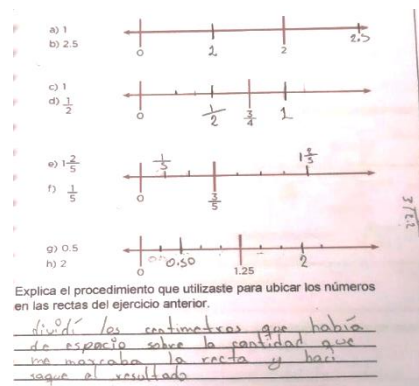 a) 1
b) 2.5
0 1 2 2.5
c) 1
d) 1/2
0 1/2 3/4 1
e) 1 2/5
f) 1/5
0 1/5 3/5 1 2/5
g) 0.5
h) 2
0 0.50 1.25 2
Explica el procedimiento que utilizaste para ubicar los números
en las rectas del ejercicio anterior.
dividí los centimetros que había
de espacio sobre la cantidad que
me marcaba la recta y haci
saque el resultado